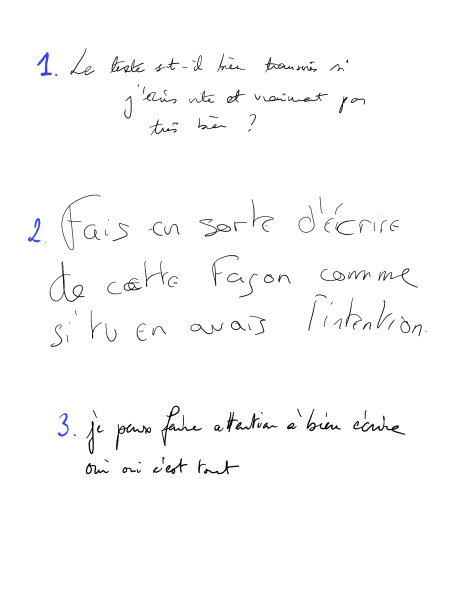 1. Le texte est-il bien transmis si
j'écris vite et vraiment pas
très bien ?
2. Fais en sorte d'écrire
de cette façon comme
si tu en avais l'intention.
3. je peux faire attention à bien écrire
oui oui c'est tout